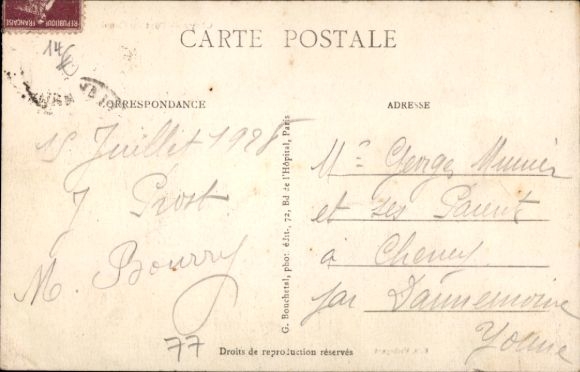 REPUBLIQUE FRANÇAISE
14
CARTE POSTALE
CORRESPONDANCE
ADRESSE
15 Juillet 1928
J Prost
M. Bourry
77
G. Bouchetal, phot. édit., 72, Bd de l'Hôpital, Paris
Mr Georges Munier
et ses Parent
à Cheney
par Dannemoine
Yonne
Droits de reproduction réservés